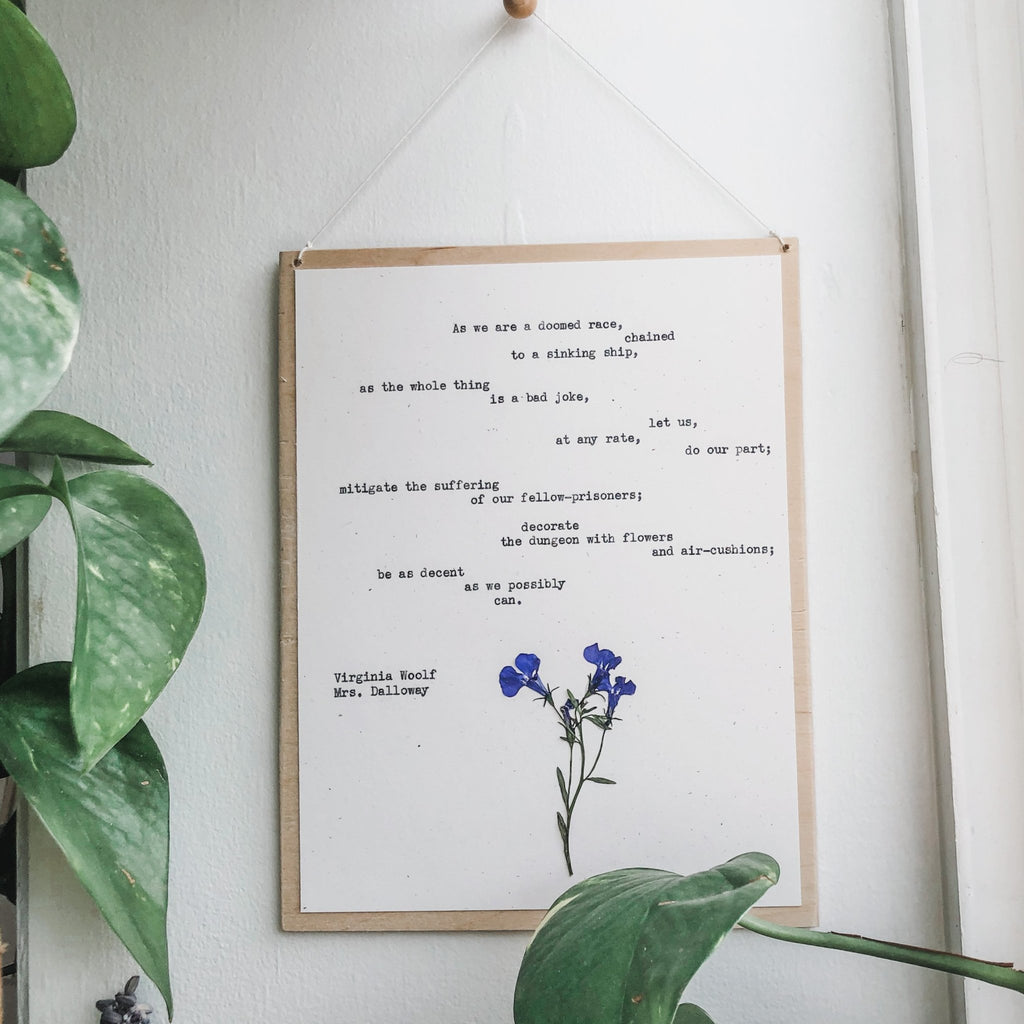 As we are a doomed race,
chained
to a sinking ship,
as the whole thing
is a bad joke,
let us,
at any rate,
do our part;
mitigate the suffering
of our fellow-prisoners;
decorate
the dungeon with flowers
and air-cushions;
be as decent
as we possibly
can.
Virginia Woolf
Mrs. Dalloway